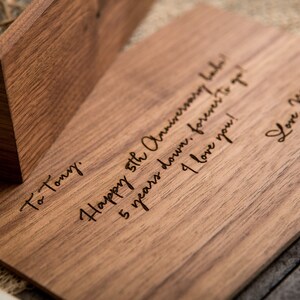 To Tony,
Happy 5th Anniversary babe!
5 years down, forever to go!
I love you!
Love